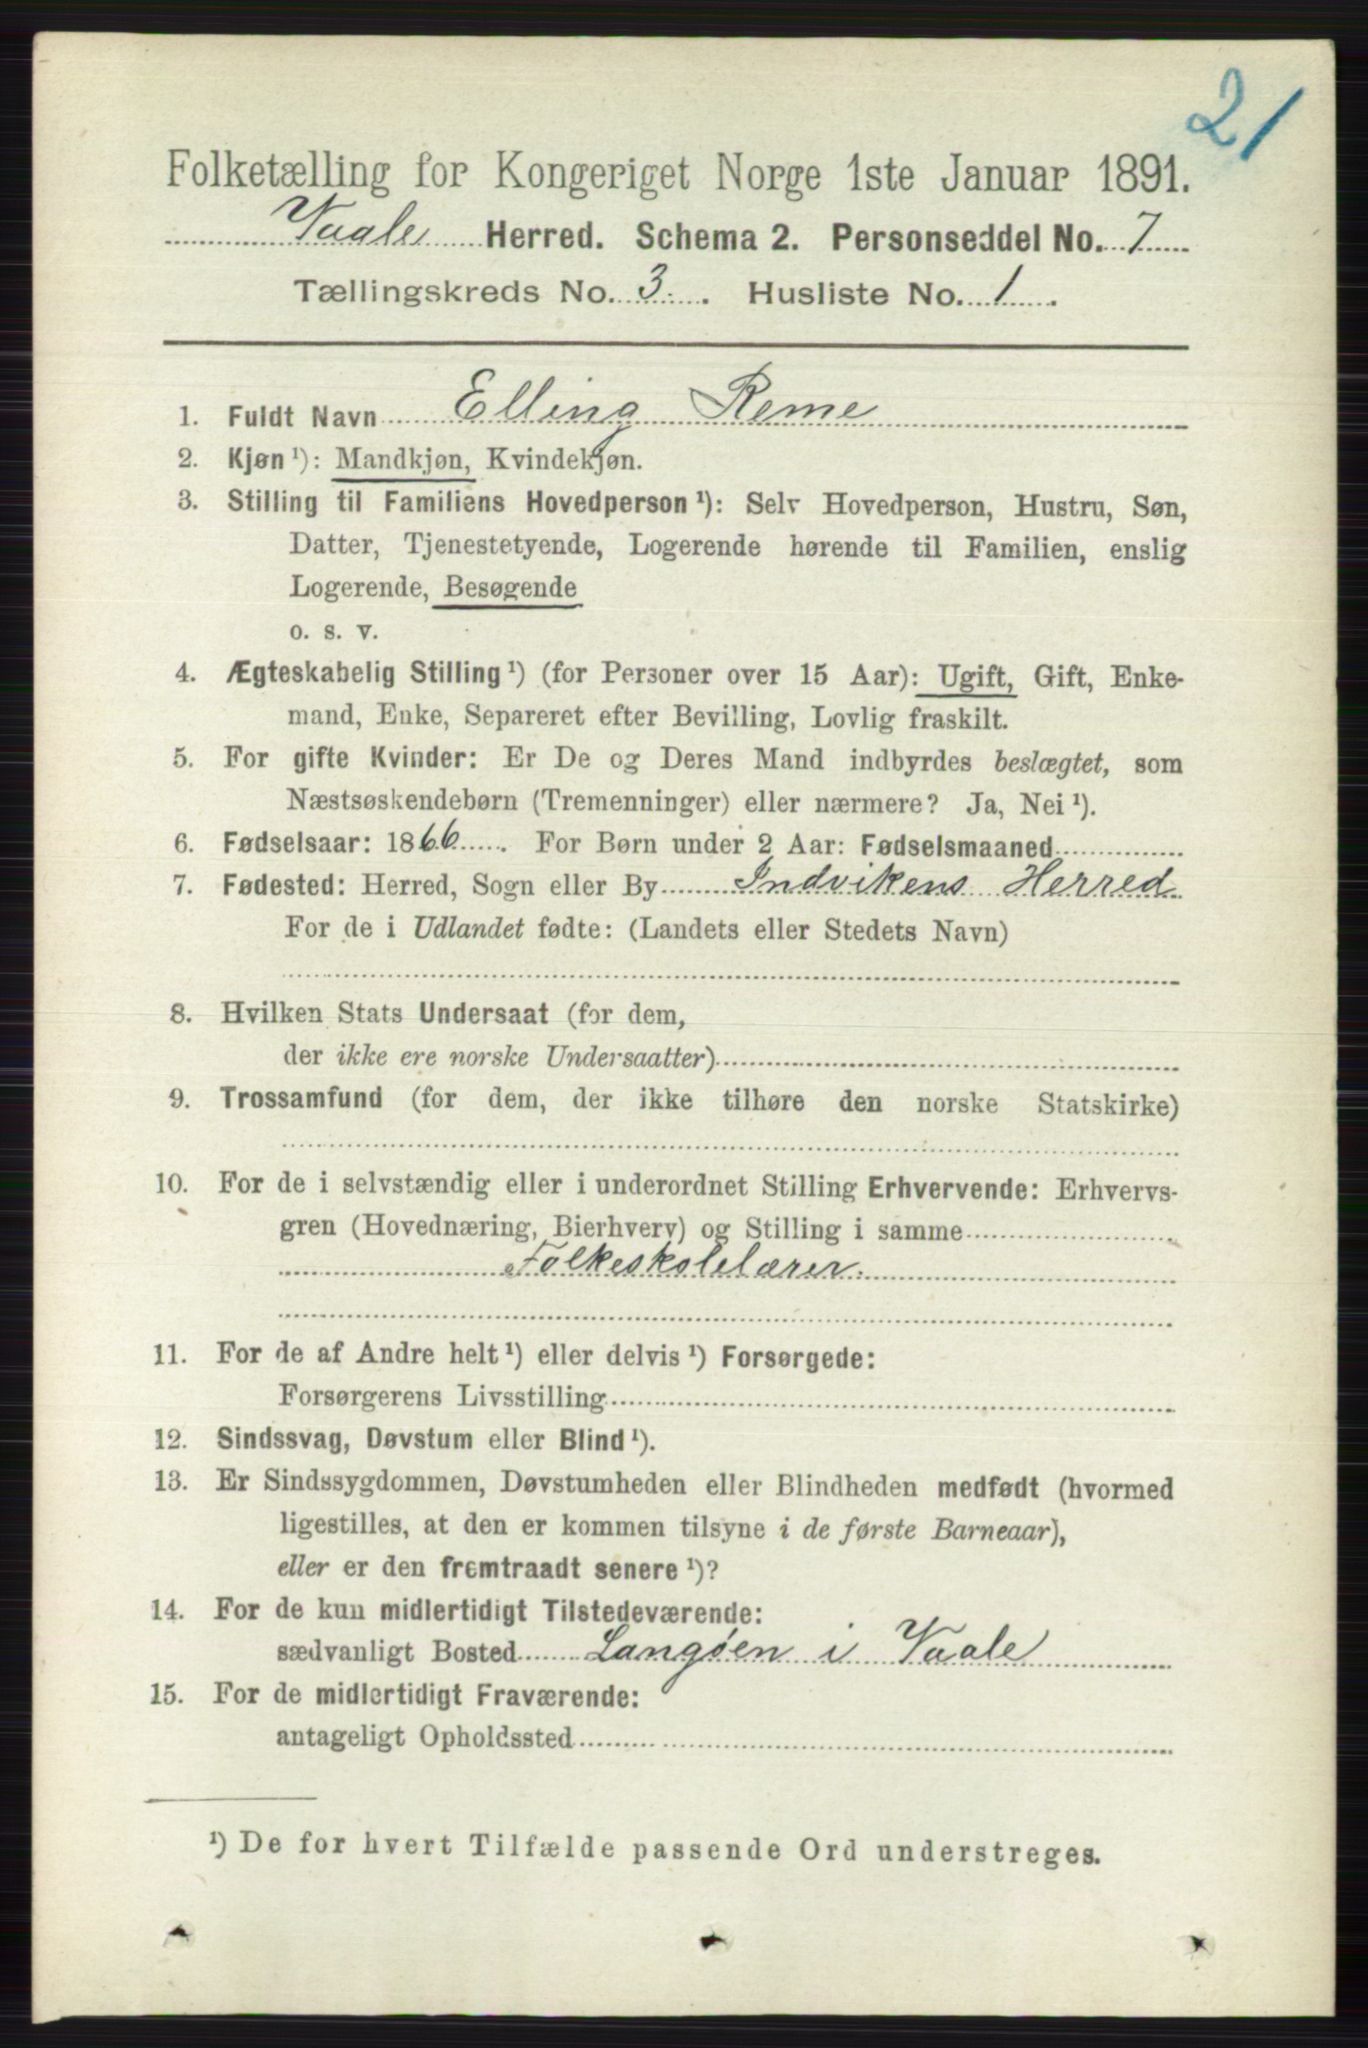 21
Folketælling for Kongeriget Norge 1ste Januar 1891.
Vaale Herred. Schema 2. Personseddel No. 7
Tællingskreds No. 3. Husliste No. 1.
1. Fuldt Navn Elling Reme
2. Kjøn ¹): Mandkjøn, Kvindekjøn.
3. Stilling til Familiens Hovedperson ¹): Selv Hovedperson, Hustru, Søn,
Datter, Tjenestetyende, Logerende hørende til Familien, enslig
Logerende, Besøgende
o. s. v.
4. Ægteskabelig Stilling ¹) (for Personer over 15 Aar): Ugift, Gift, Enke-
mand, Enke, Separeret efter Bevilling, Lovlig fraskilt.
5. For gifte Kvinder: Er De og Deres Mand indbyrdes beslægtet, som
Næstsøskendebørn (Tremenninger) eller nærmere? Ja, Nei ¹).
6. Fødselsaar: 1866. For Børn under 2 Aar: Fødselsmaaned
7. Fødested: Herred, Sogn eller By Indvikens Herred
For de i Udlandet fødte: (Landets eller Stedets Navn)
8. Hvilken Stats Undersaat (for dem,
der ikke ere norske Undersaatter)
9. Trossamfund (for dem, der ikke tilhøre den norske Statskirke)
10. For de i selvstændig eller i underordnet Stilling Erhvervende: Erhvervs-
gren (Hovednæring, Bierhverv) og Stilling i samme
Folkeskolelærer.
11. For de af Andre helt ¹) eller delvis ¹) Forsørgede:
Forsørgerens Livsstilling
12. Sindssvag, Døvstum eller Blind ¹).
13. Er Sindssygdommen, Døvstumheden eller Blindheden medfødt (hvormed
ligestilles, at den er kommen tilsyne i de første Barneaar),
eller er den fremtraadt senere ¹)?
14. For de kun midlertidigt Tilstedeværende:
sædvanligt Bosted Langøen i Vaale
15. For de midlertidigt Fraværende:
antageligt Opholdssted
¹) De for hvert Tilfælde passende Ord understreges.